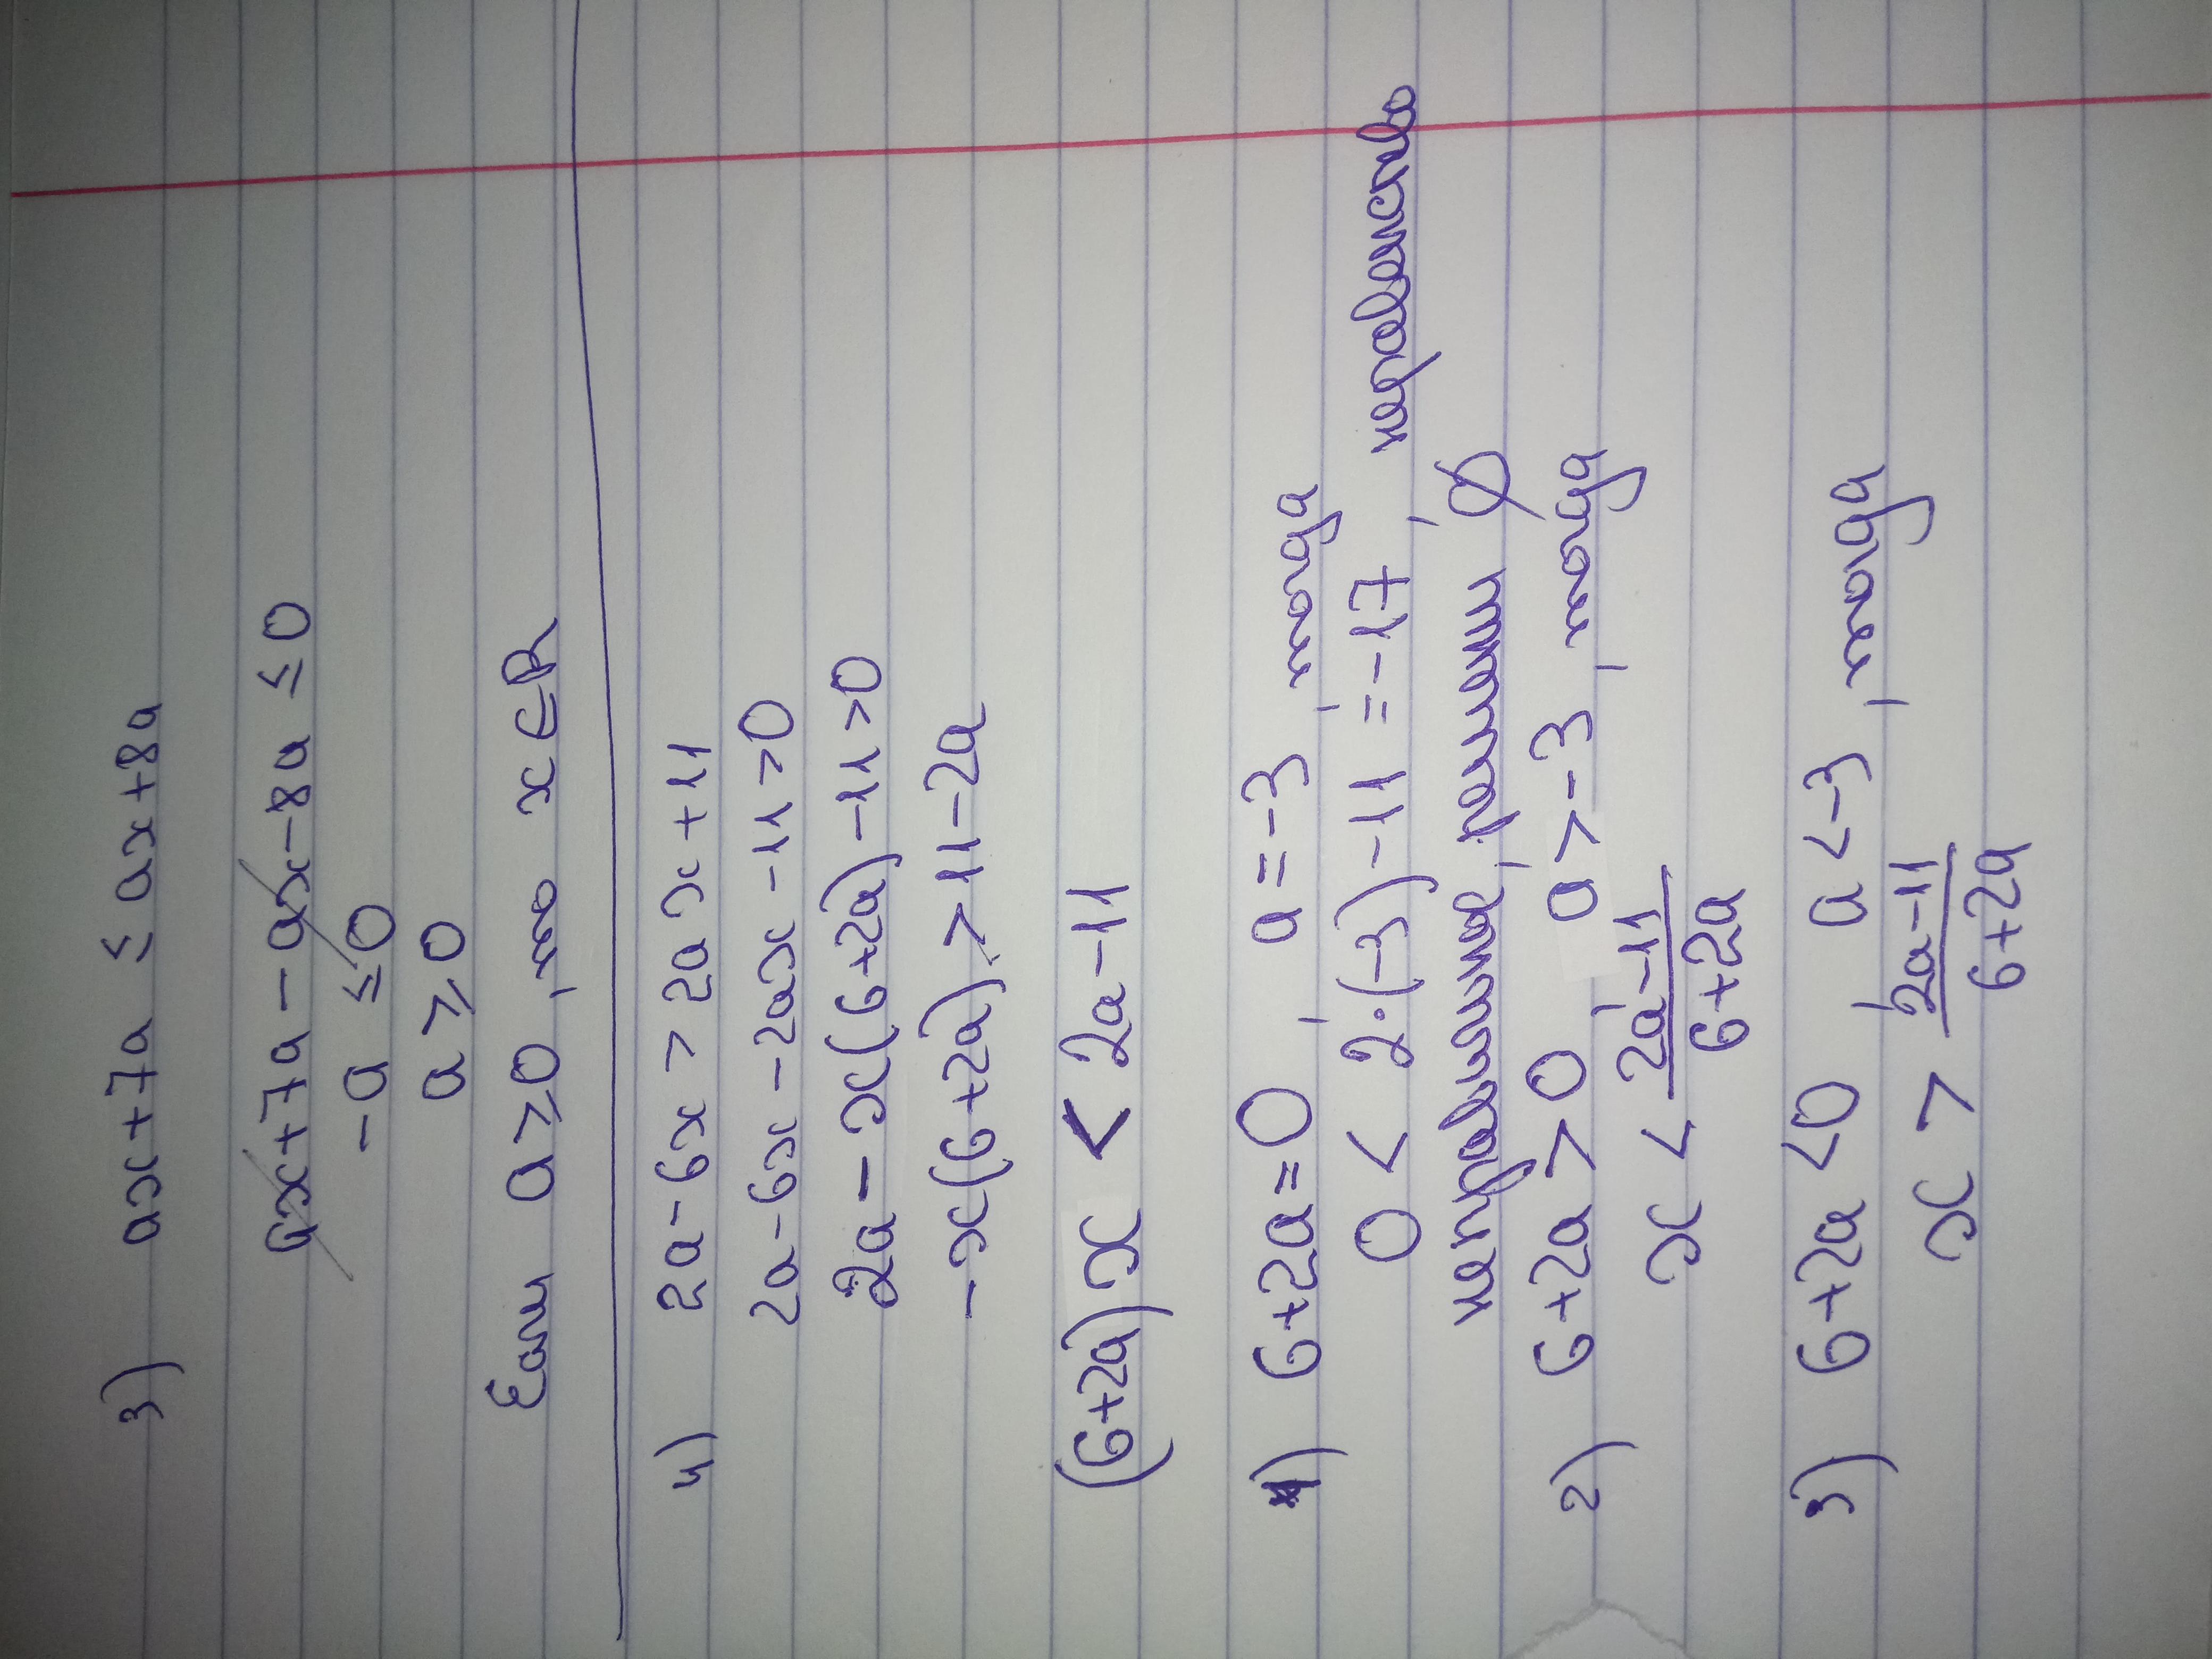 3) ax+7a ≤ ax+8a
ax+7a-ax-8a ≤ 0
-a ≤ 0
a ≥ 0
Если a ≥ 0, то x∈R
4) 2a-6x > 2ax+11
2a-6x-2ax-11>0
2a-x(6+2a)-11>0
-x(6+2a)>11-2a
(6+2a)x < 2a-11
1) 6+2a=0, a=-3, тогда
0 < 2·(-3)-11=-17, неравенство
неправильное, решений ∅
2) 6+2a>0 a>-3, тогда
x < \frac{2a-11}{6+2a}
3) 6+2a<0, a<-3, тогда
x > \frac{2a-11}{6+2a}